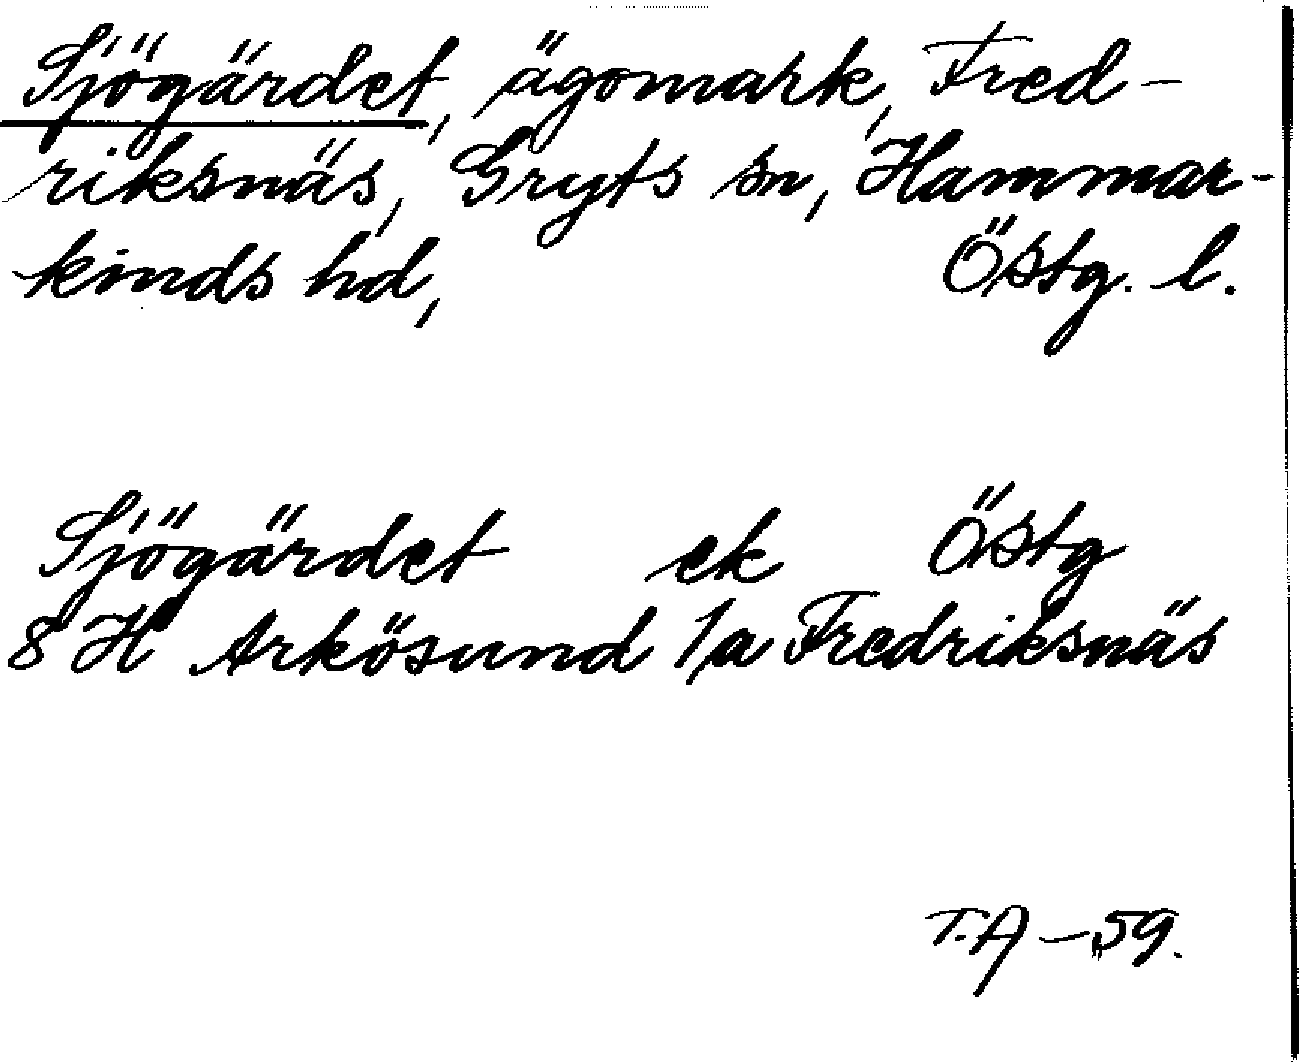 Sjögärdet, ägomark, Fred-
riksnäs, Gryts sn, Hammar-
kinds hd, Östg. l.
Sjögärdet ek Östg
8 H Arkösund 1/a Fredriksnäs
T.A - 59.